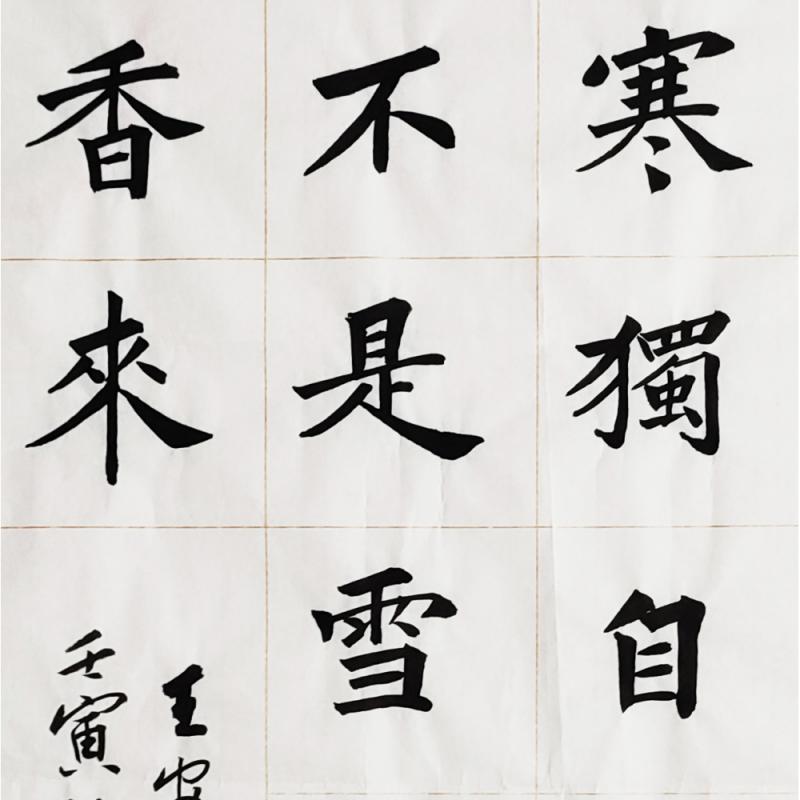 寒獨自
不是雪
香來
王安
壬寅